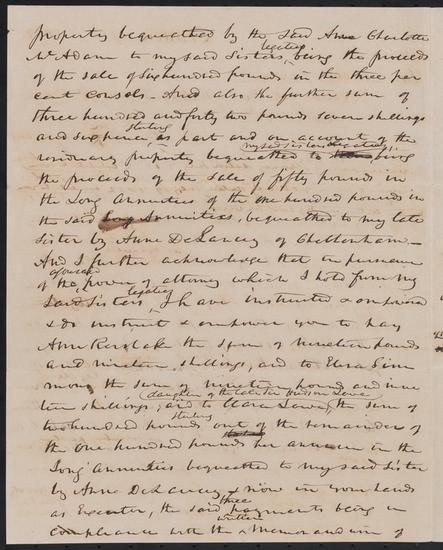 property bequeathed by the said Anne Charlotte
McAdam to my said Sisters legatees being the proceeds
of the sale of six hundred pounds in the three per
cent Consols - And also the further sum of
three hundred and forty two pounds seven shillings
and six pence sterling as part and on account of the
property bequeathed to my said Sisters being
the proceeds of the sale of fifty pounds in
the Long Annuities of the one hundred pounds in
the said Long Annuities, bequeathed to my late
Sister by Anne DeLancey of Cheltenham -
And I further acknowledge that in pursuance
of the power of attorney which I hold from my
said Sisters legatees, I have instructed & empowered
& do instruct & empower you to pay
Ann the sum of nineteen pounds
and nineteen shillings, and to Eliza Sim
mons the sum of nineteen pounds and nine
teen shillings, and to Clara Lowe, (daughter of the late Sir Hudson Lowe) the sum of
two hundred pounds sterling out of the remainder of
the one hundred pounds per annum in the
Long Annuities bequeathed to my said Sister
by Anne DeLancey & now in your hands
as Executor, the said three payments being in
compliance with the written Memorandum of